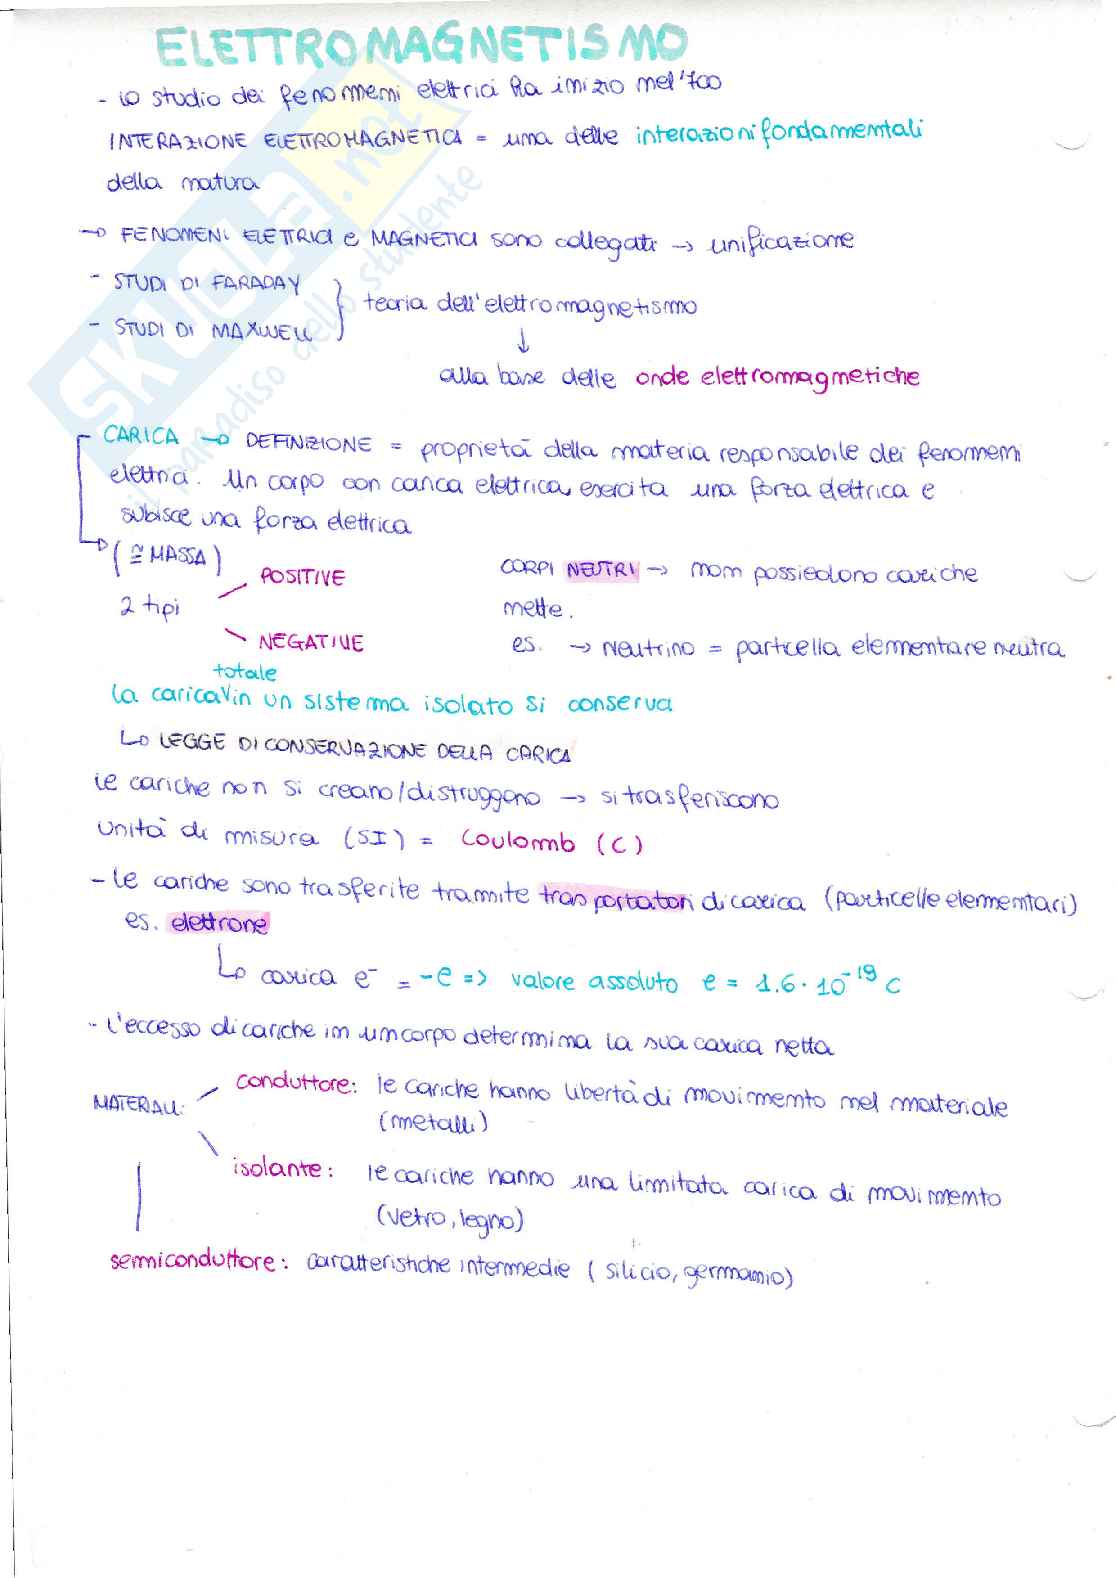 ELETTROMAGNETISMO
- lo studio dei fenomeni elettrici ha inizio nel '700
INTERAZIONE ELETTROMAGNETICA = una delle interazioni fondamentali
della natura
→ FENOMENI ELETTRICI e MAGNETICI sono collegati → unificazione
- STUDI DI FARADAY
- STUDI DI MAXWELL
} teoria dell'elettromagnetismo
↓
alla base delle onde elettromagnetiche
CARICA → DEFINIZIONE = proprietà della materia responsabile dei fenomeni
elettrici. Un corpo con carica elettrica, esercita una forza elettrica e
subisce una forza elettrica
(≅ MASSA)
2 tipi
POSITIVE
NEGATIVE
CORPI NEUTRI → non possiedono cariche
nette.
es. → Neutrino = particella elementare neutra
totale
la carica V in un sistema isolato si conserva
↳ LEGGE DI CONSERVAZIONE DELLA CARICA
le cariche non si creano/distruggono → si trasferiscono
unità di misura (SI) = Coulomb (C)
- le cariche sono trasferite tramite trasportatori di carica (particelle elementari)
es. elettrone
↳ carica e⁻ = -e => valore assoluto e = 1.6 · 10⁻¹⁹ C
- l'eccesso di cariche in un corpo determina la sua carica netta
MATERIALI:
conduttore: le cariche hanno libertà di movimento nel materiale
(metalli)
isolante: le cariche hanno una limitata carica di movimento
(vetro, legno)
semiconduttore: caratteristiche intermedie (silicio, germanio)
SKUOLA.net
il paradiso dello studente